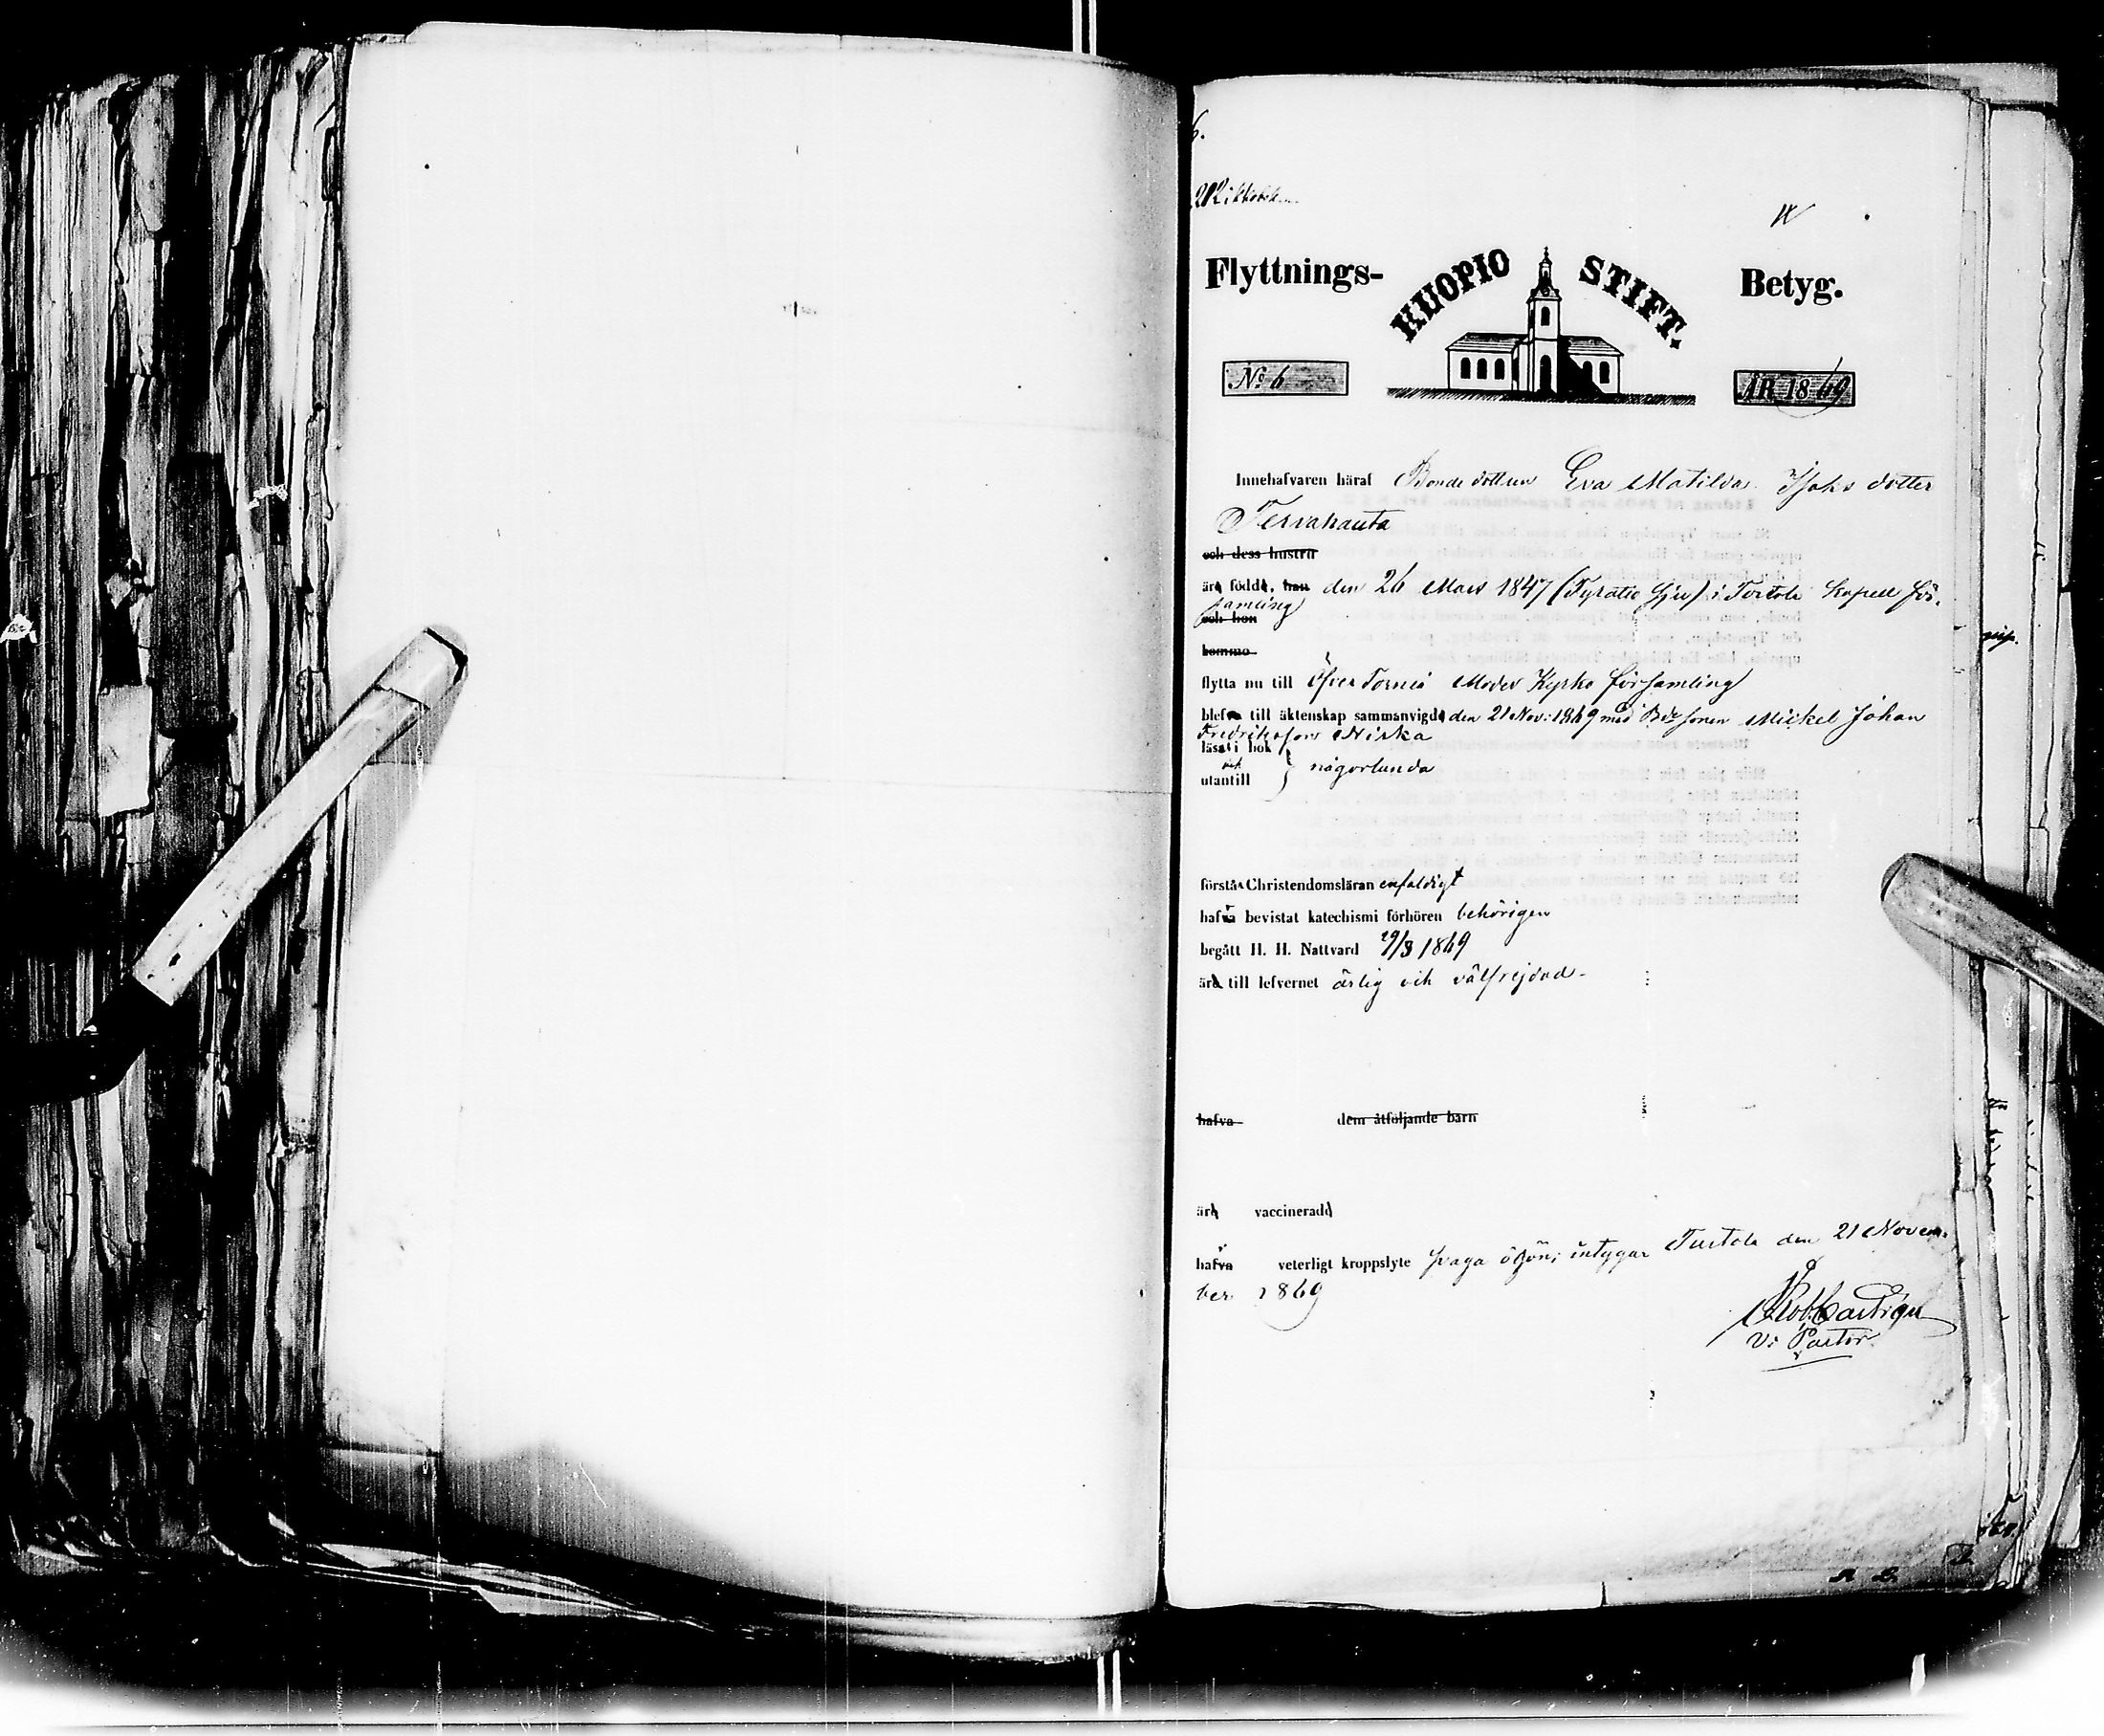 6.
Flyttnings-
KUOPIO STIFT.
Betyg.
№ 6
ÅR 1869
Innehafvaren häraf Bondedottren Eva Matilda Isaks dotter
Tervahauta
och dess hustru
är född, han den 26 Mars 1847 (Fyratio sju) i Turtola Kapell för-
samling
och hon
komme
flytta nu till Öfver Torneå Moder Kyrko församling
blef till äktenskap sammanvigd den 21 Nov: 1869 med Bde sonen Mickel Johan
Fredriksson Niska
läsa i bok
och } någorlunda
utantill
förstå Christendomsläran enfaldigt
hafva bevistat katechismi förhören behörigen
begått H. H. Nattvard 29/3 1869
är till lefvernet ärlig och välfrejdad
hafva dem åtföljande barn
är vaccinerad
hafva veterligt kroppslyte svaga ögon; intygar Turtola den 21 Novem-
ber 1869
V: Pastor.